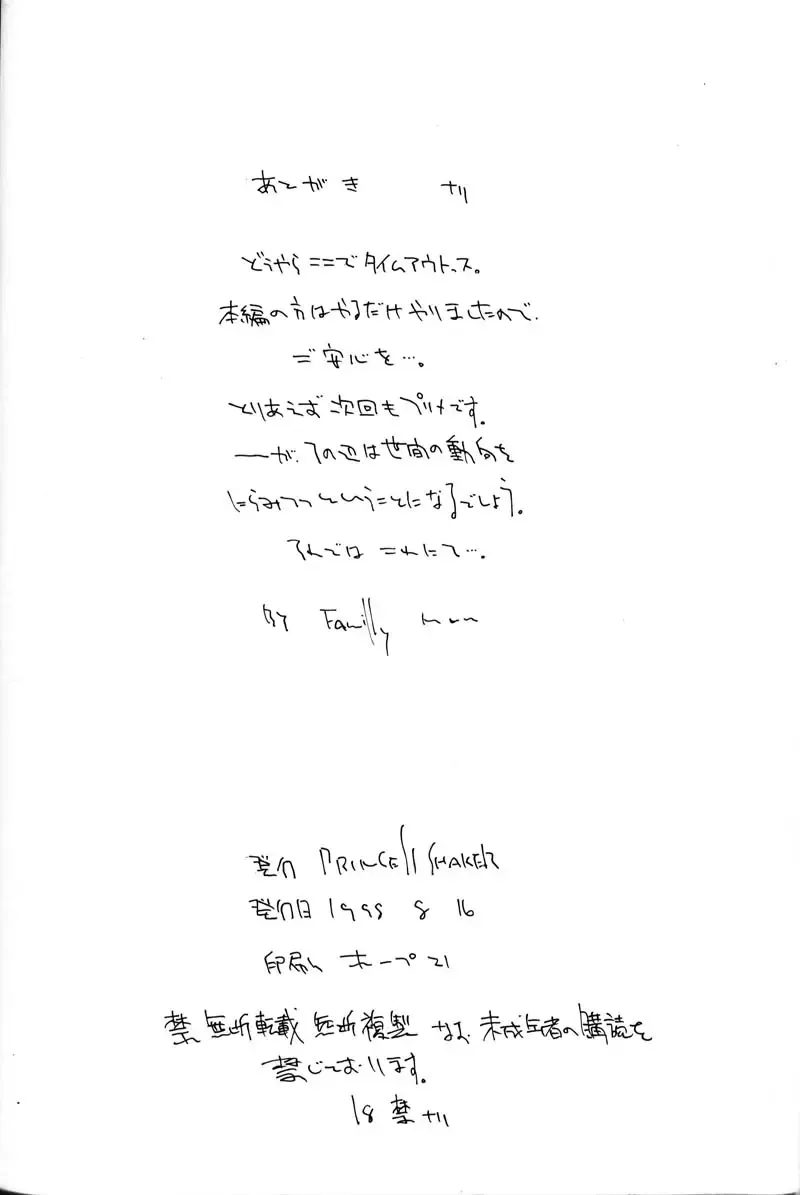 あとがき ナリ
どうやらここでタイムアウトっス。
本編の方はやるだけやりましたので、
ご安心を…。
とりあえず次回もプリメです。
――が、その辺は世間の動向を
にらみつつということになるでしょう。
それでは これにて…。
BY Familly
発行 PRINCESS SHAKER
発行日 1998 8 16
印刷 ホープ21
禁 無断転載 無断複製 なお、未成年者の購読を
禁じております。
18禁ナリ